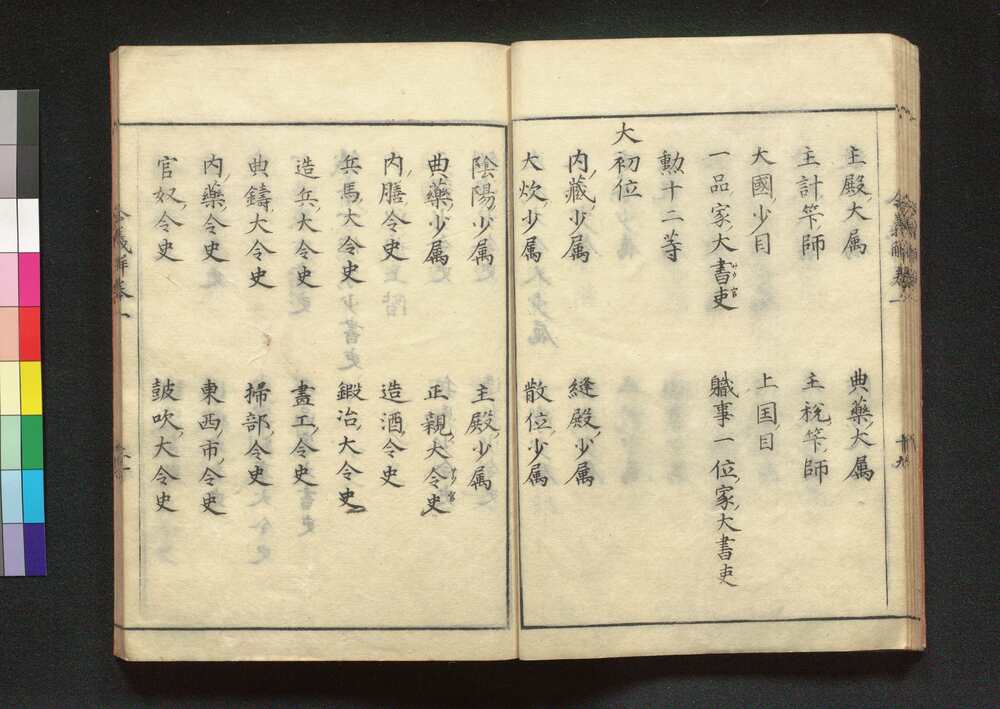 主殿大属　典藥大属
主計筭師　主稅筭師
大國少目　上国目
一品家大書吏　職事一位家大書吏
勲十二等
大初位
内藏少属　縫殿少属
大炊少属　散位少属
陰陽少属　主殿少属
典藥少属　正親大令史
内膳令史　造酒令史
兵馬大令史　鍛冶大令史
造兵大令史　畫工令史
典鑄大令史　掃部令史
内藥令史　東西市令史
官奴令史　鼓吹大令史